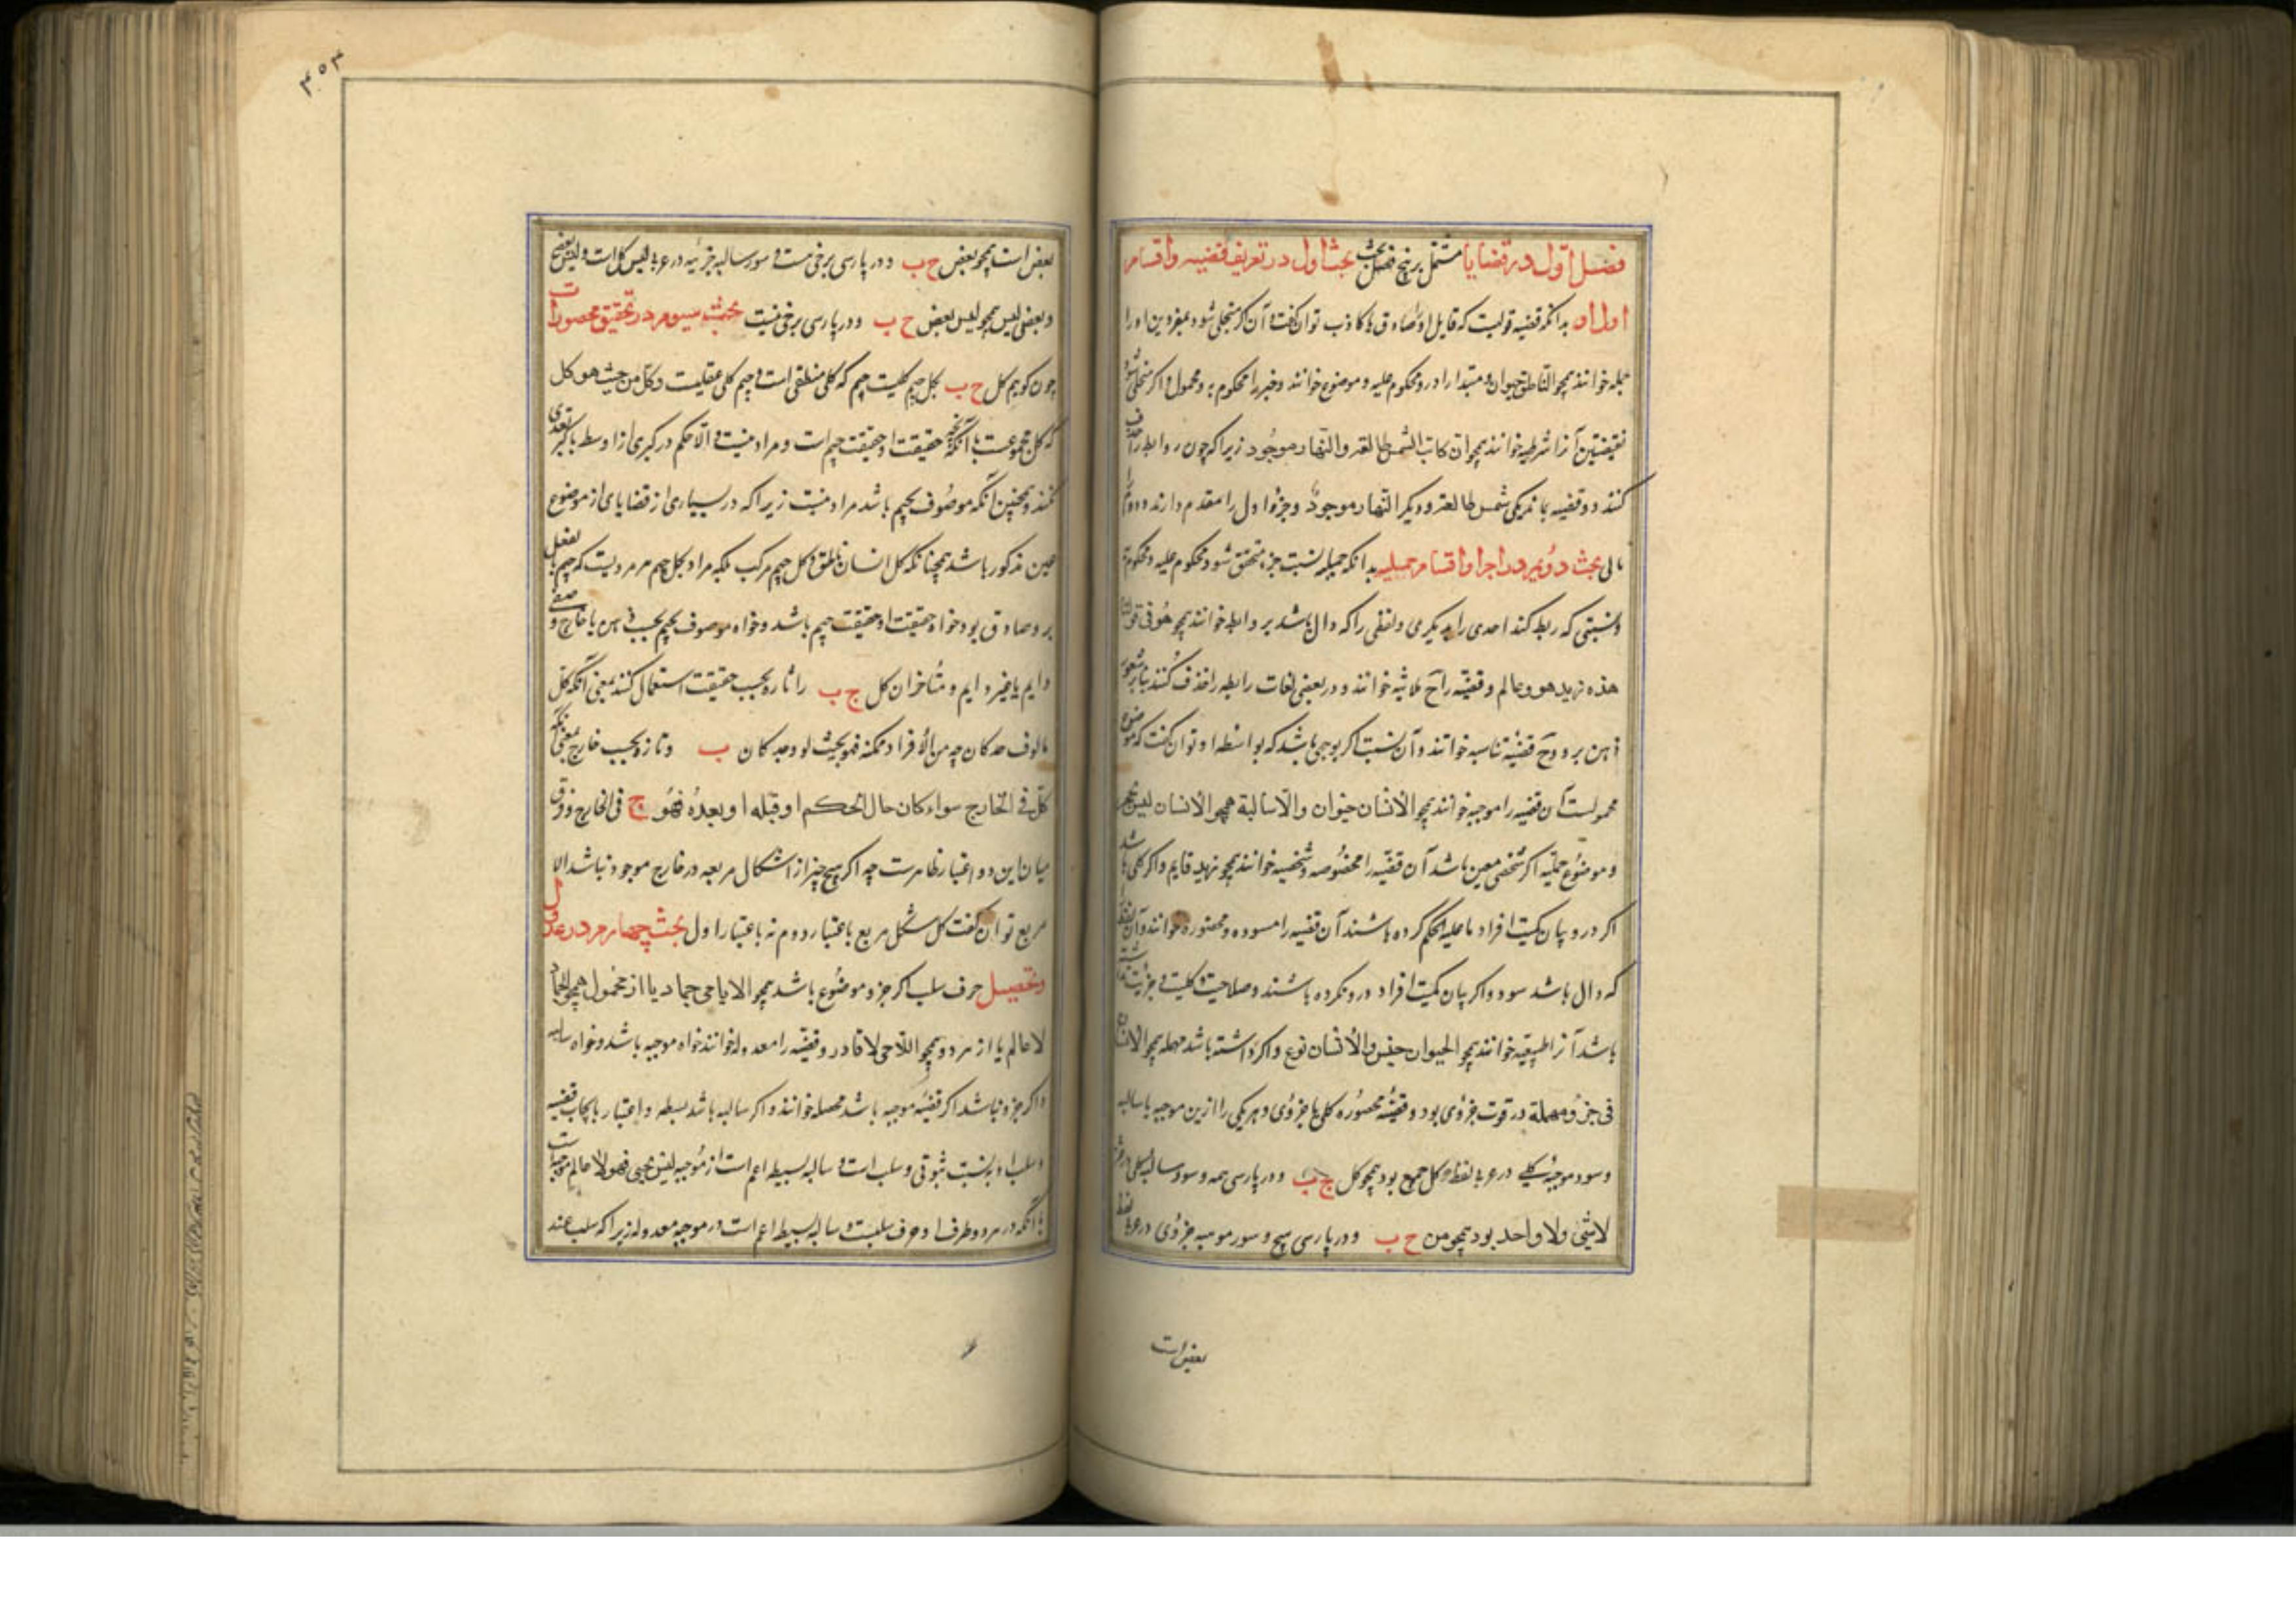 فصل اول در قضایا مشتمل بر پنج بحث بحث اول در تعریف قضیه و اقسام
اولیه بدانکه قضیه قولیست که قایل او را صادق یا کاذب توان گفت و آن اگر منحل شود بمفردین او را
حملیه خوانند همچو الناطق حیوان و مبتدا را درو محکوم علیه و موضوع خوانند و خبر را محکوم به و محمول و اگر منحل شود
بقضیتین آنرا شرطیه خوانند همچو ان کانت الشمس طالعة والنهار موجود زیرا که چون روابط را حذف
کنند دو قضیه بماند یکی شمس طالعة و دیگر النهار موجود و جزو اول را مقدم دارند و دوم را
تالی بحث دویم در اجزا و اقسام حملیه بدانکه حملیه بسه جزو متحقق شود محکوم علیه و محکوم به
و نسبتی که ربط کند احدی را بدیگری و لفظی را که دال باشد برو رابطه خوانند همچو هو فی قولنا
هذه زید هو عالم و قضیه را ح ثلاثیه خوانند و در بعضی لغات رابطه را حذف کنند بنابر شعور
ذهن برو و ح قضیه ثناییه خوانند و آن نسبت اگر بوجهی باشد که بواسطه او توان گفت که موضوع
محمولست آن قضیه را موجبه خوانند همچو الانسان حیوان والا سالبة همچو الانسان لیس بحجر
و موضوع حملیه اگر شخصی معین باشد آن قضیه را مخصوصه و شخصیه خوانند همچو زید قایم و اگر کلی باشد
اگر درو بیان کمیت افراد ما علیه الحکم کرده باشند آن قضیه را مسوره و محصوره خوانند و آن لفظ
که دال باشد سور و اگر بیان کمیت افراد درو نکرده باشند و صلاحیت کلیت و جزئیت نداشته
باشد آنرا طبیعیه خوانند همچو الحیوان جنس والانسان نوع و اگر داشته باشد مهمله همچو الانسان
فی خسر و مهملة در قوت جزوی بود و قضیه محصوره کلی یا جزوی و هر یکی را ازین موجبه یا سالبه
و سور موجبه کلی در عربی لفظ کل جمع بود همچو کل ج ب و در پارسی همه و سور سالبه کلی در عربی
لاشی ولا واحد بود همچو من ج ب و در پارسی هیچ و سور موجبه جزوی در عربی لفظ
بعض است
۳۵۳
بعض است همچو بعض ج ب و در پارسی برخی هست و سور سالبه جزئیه در عربی لیس کل است و لیس بعض
و بعضی لیس همچو لیس بعض ج ب و در پارسی برخی نیست بحث سیوم در تحقیق محصورات
چون گوییم کل ج ب بکل جیم کلیت جیم که کلی منطقی است و جیم کلی عقلیست و کل من حیث هو کل
که کل مجموعیست یا آنکه حقیقت او حقیقت جیم است و مراد نیست و الا حکم در کبری از اوسط باکبر تعدی
نکند و همچنین آنکه موصوف بجیم باشد مراد نیست زیرا که در بسیاری از قضایای از موضوع
عین مذکور باشد همچنانکه کل انسان ناطق و کل جیم مرکب بلکه مراد بکل جیم هر فردیست که جیم بالفعل
برو صادق بود خواه حقیقت او حقیقت جیم باشد و خواه موصوف بجیم بحسب ذهن یا خارج و صفی
دایم یا غیر دایم و متأخران کل ج ب را تارة بحسب حقیقت استعمال کنند بمعنی آنکه کل
مالو وجد کان جیم من الافراد ممکنه فهو بحیث لو وجد کان ب و تارة بحسب خارج بمعنی آنکه
کل فی الخارج سواء کان حال الحکم او قبله او بعده فهو ج فی الخارج و فرق
میان این دو اعتبار ظاهرست چه اگر هیچ چیز از اشکال مربعه در خارج موجود نباشد الا
مربع توان گفت کل شکل مربع باعتبار دوم نه باعتبار اول بحث چهارم در عدول
و تحصیل حرف سلب اگر جزو موضوع باشد همچو الایاحی جماد یا از محمول همچو الجماد
لا عالم یا از هر دو همچو اللاحی لا قادر و قضیه را معدوله خوانند خواه موجبه باشد و خواه سالبه
و اگر جزو نباشد اگر قضیه موجبه باشد محصله خوانند و اگر سالبه باشد بسیطه و اعتبار بایجاب قضیه
و سلب او بنسبت ثبوتی و سلبی است و سالبه بسیطه اعم است از موجبه لیس بحی فهو لا عالم موجبه است
با آنکه در هر دو طرف او حرف سلبست و سالبه بسیطه اعم است از موجبه معدوله زیرا که سلب عند